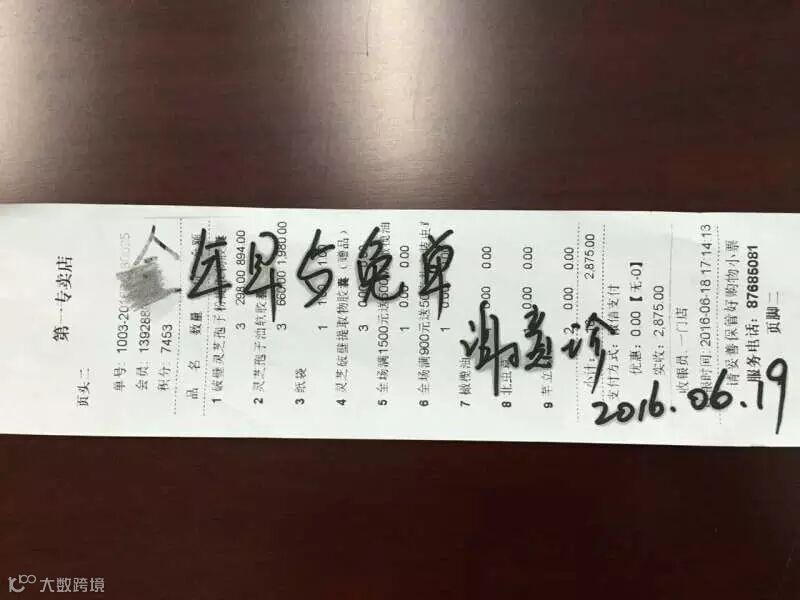 页头二 第一专卖店
单号: 1003-20
会员: 139288
积分: 7453
品 名 数量
1 破壁灵芝孢子
3 298.00 894.00
2 灵芝孢子油软胶
3 660.00 1,980.00
3 纸袋
4 灵芝破壁提取物胶囊 (赠品)
3 0.00
5 全场满1500元送
1 0.00
6 全场满900元送50
1
7 橄榄油
0.00
8 北虫
0.00
9
2 0.00
小计: 2,875.00
支付方式: 微信支付
优惠: 0.00 【无-0】
实收: 2,875.00
收银员: 一门店
时间: 2016-06-18 17:14:13
请妥善保管好购物小票
服务电话: 87685081
页脚二
免单
2016.06.19
大数跨境